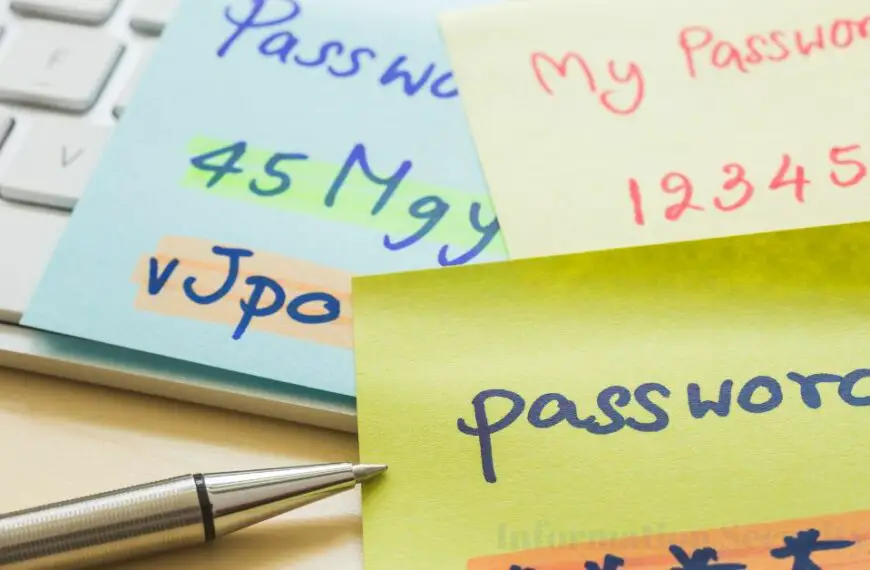 Passwo
45 Mgy
vJpo
My Passwor
12345
password
Information Secur
****
F
V